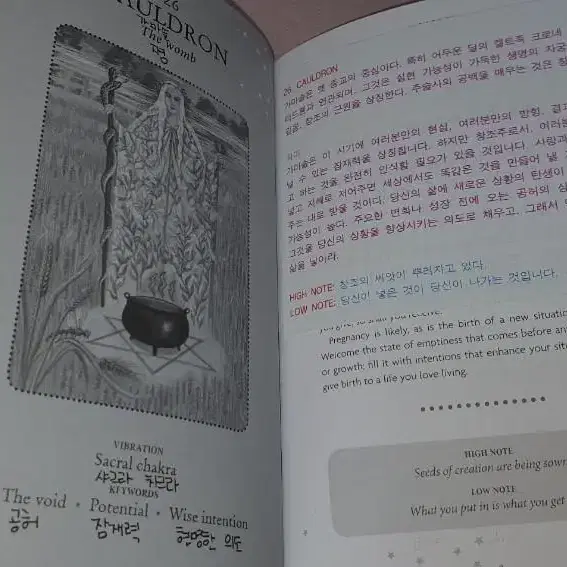 26
CAULDRON
가마솥
The Womb
VIBRATION
Sacral chakra
샤크라 차크라
KEYWORDS
The void • Potential • Wise intention
공허 잠재력 현명한 의도
26 CAULDRON
가마솥은 옛 종교의 중심이다. 특히 어두운 달의 켈트족 크로네
리드웬과 연관되며, 그것은 실현 가능성이 가득한 생명의 자궁
깊음, 창조의 근원을 상징한다. 주술사의 공백을 메우는 것은 창
가마솥은 이 시기에 여러분만의 현실, 여러분만의 방향, 결과
낼 수 있는 잠재력을 상징합니다. 하지만 창조주로서, 여러분
고 하는 것을 완전히 인식할 필요가 있을 것입니다. 사랑과
넣고 지혜로 저어주면 세상에서도 똑같은 것을 만들어 낼
주는 대로 받을 것이다. 당신의 삶에 새로운 상황의 탄생이
가능성이 높다. 주요한 변화나 성장 전에 오는 공허의 상
그것을 당신의 상황을 향상시키는 의도로 채우고, 그래서
삶을 낳아라.
HIGH NOTE: 창조의 씨앗이 뿌려지고 있다.
LOW NOTE: 당신이 넣은 것이 당신이 나가는 것입니다.
Pregnancy is likely, as is the birth of a new situatio
Welcome the state of emptiness that comes before an
or growth; fill it with intentions that enhance your sit
give birth to a life you love living.
HIGH NOTE
Seeds of creation are being sown
LOW NOTE
What you put in is what you get